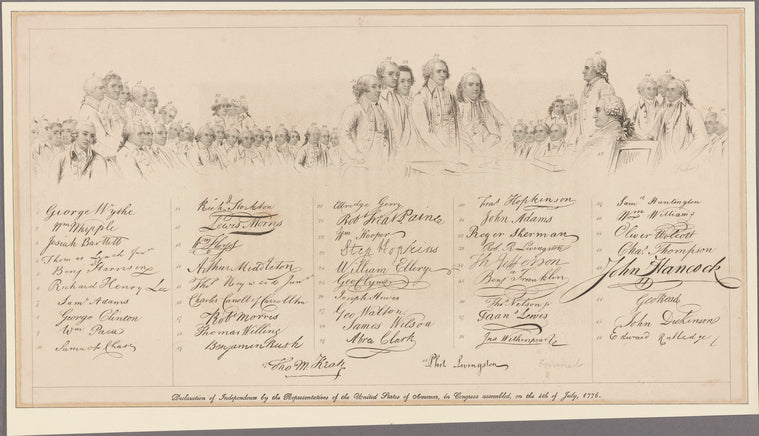 George Wythe
Wm Whipple
Josiah Bartlett
Thomas Lynch Junr
Benj Harrison
Richard Henry Lee
Saml Adams
George Clinton
Wm Paca
Samuel Chase
Richd Stockton
Lewis Morris
Arthur Middleton
Thos Heyward Junr
Charles Carroll of Carrollton
Robt Morris
Thomas Willing
Benjamin Rush
Elbridge Gerry
Robt Treat Paine
Wm Hooper
Step Hopkins
William Ellery
Geo Clymer
Joseph Hewes
Geo Walton
James Wilson
Abra Clark
Fras Hopkinson
John Adams
Roger Sherman
Rob. R. Livingston
Th Jefferson
Benja Franklin
Thos Nelson jr
Jno Witherspoon
Saml Huntington
Wm Williams
Oliver Wolcott
Chas Thompson
John Hancock
Geo Read
John Dickinson
Edward Rutledge
Tho M: Kean
Phil. Livingston
Declaration of Independence by the Representatives of the United States of America, in Congress assembled, on the 4th of July, 1776.